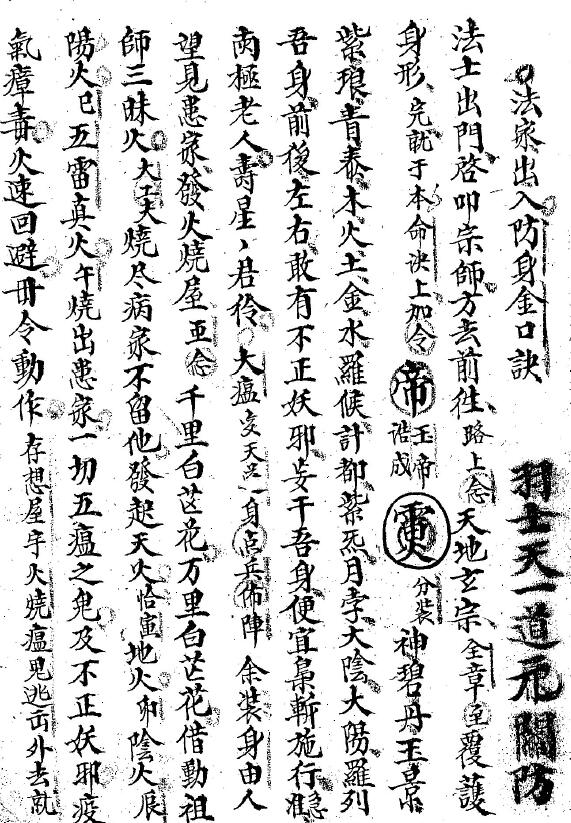 法家出入防身金口訣
羽士天一道元關防
法士出門啓叩宗師方去前往路上念天地玄宗全章至覆護
身形完就于本命訣上加令帝玉帝誥成霐分裝神碧丹玉景
紫琅青泰木火土金水羅候計都紫炁月孛太陰太陽羅列
吾身前後左右敢有不正妖邪妄干吾身便宜梟斬施行
南極老人壽星君伶大瘟交天呂一身占兵佈陣余裝身由人
望見患家發火燒屋亚念千里白芒花万里白芒花借動祖
師三昧火燒尽病家不留他發起天火恰寅地火卯陰火辰
陽火巳五雷真火午燒出患家一切五瘟之鬼及不正妖邪疫
氣瘴毒火速回避毋令動作存想屋宇火燒瘟鬼逃岀外去就